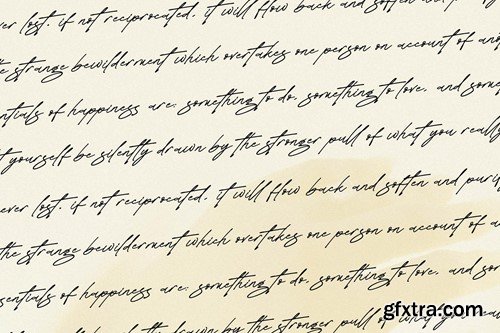 ver lost. if not reciprocated, it will flow back and soften and puri
the strange bewilderment which overtakes one person on account of ano
entials of happiness are: something to do, something to love, and some
t yourself be silently drawn by the stronger pull of what you really
ever lost. if not reciprocated, it will flow back and soften and purif
the strange bewilderment which overtakes one person on account of an
sentials of happiness are: something to do, something to love, and som
yourself be silently drawn by the stronger pull of what you
gfxtra.com